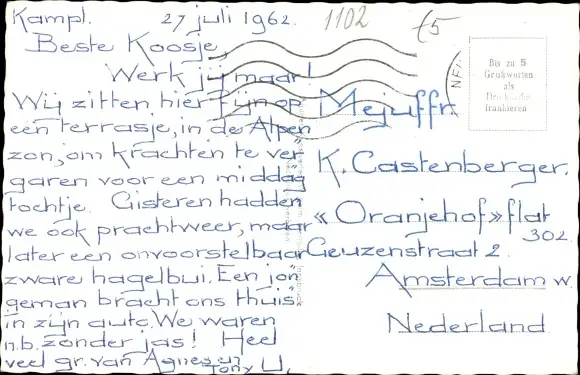 Kampl. 27 juli 1962.
1102
£5
Beste Koosje,
Werk jij maar!
Wij zitten hier fijn op
een terrasje, in de Alpen
zon, om krachten te ver
garen voor een middag
tochtje. Gisteren hadden
we ook prachtweer, maar
later een onvoorstelbaar
zware hagelbui. Een jon
geman bracht ons thuis
in zijn auto. We waren
n.b. zonder jas! Heel
veel gr. van Agnes en
Tony U,
Bis zu 5
Grußworten
als
Drucksache
frankieren
Mejuffr.
K. Castenberger.
«Oranjehof» flat
302.
Geuzenstraat 2.
Amsterdam w.
Nederland